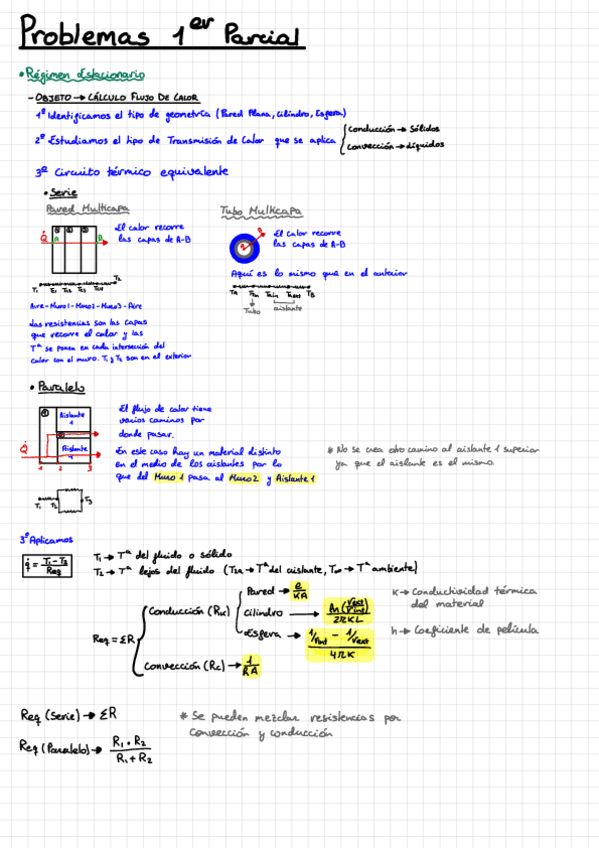 Problemas 1er Parcial
• Régimen Estacionario
- OBJETO → CÁLCULO FLUJO DE CALOR
1º Identificamos el tipo de geometría (Pared Plana, Cilindro, Esfera)
2º Estudiamos el tipo de Transmisión de Calor que se aplica { Conducción → Sólidos
Convección → Líquidos
3º Circuito térmico equivalente
• Serie
Pared Multicapa
Q A B
El calor recorre
las capas de A-B
T1 T2
Aire - Muro1 - Muro2 - Muro3 - Aire
Las resistencias son las capas
que recorre el calor y las
Tª se ponen en cada intersección del
calor con el muro. T1 y T2 son en el exterior
Tubo Multicapa
El calor recorre
las capas de A-B
Aquí es lo mismo que en el anterior
TB
Tubo aislante
• Paralelo
Aislante 1
Aislante 1
Q
1 2 3
T1 T2 T3
El flujo de calor tiene
varios caminos por
donde pasar.
En este caso hay un material distinto
en el medio de los aislantes por lo
que del Muro 1 pasa al Muro 2 y Aislante 1
* No se crea otro camino al aislante 1 superior
ya que el aislante es el mismo.
3º Aplicamos
T1 → Tª del fluido o sólido
T2 → Tª lejos del fluido (T2A → Tª del aislante, T∞ → Tª ambiente)
Req = ΣR
Conducción (Rk)
Pared → e/KA
Cilindro → ln(rext/rint)/2πKL
Esfera → (1/rint - 1/rext)/4πK
Convección (Rc) → 1/hA
K → Conductividad térmica
del material
h → Coeficiente de película
Req (Serie) → ΣR
Req (Paralelo) → R1 · R2 / R1 + R2
* Se pueden mezclar resistencias por
convección y conducción